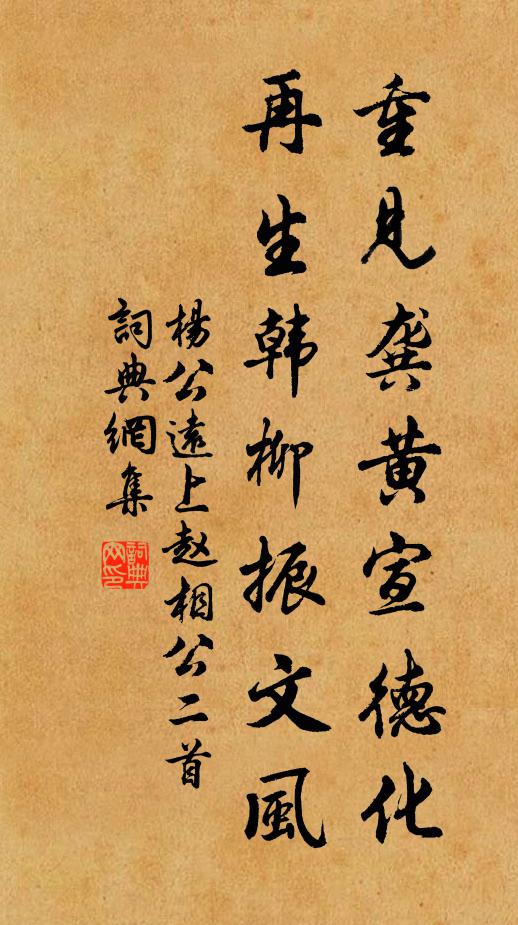 重見龚黄宣德化
再生韩柳振文風
楊公遠上赵相公二首
詞典網集
詞典
网印